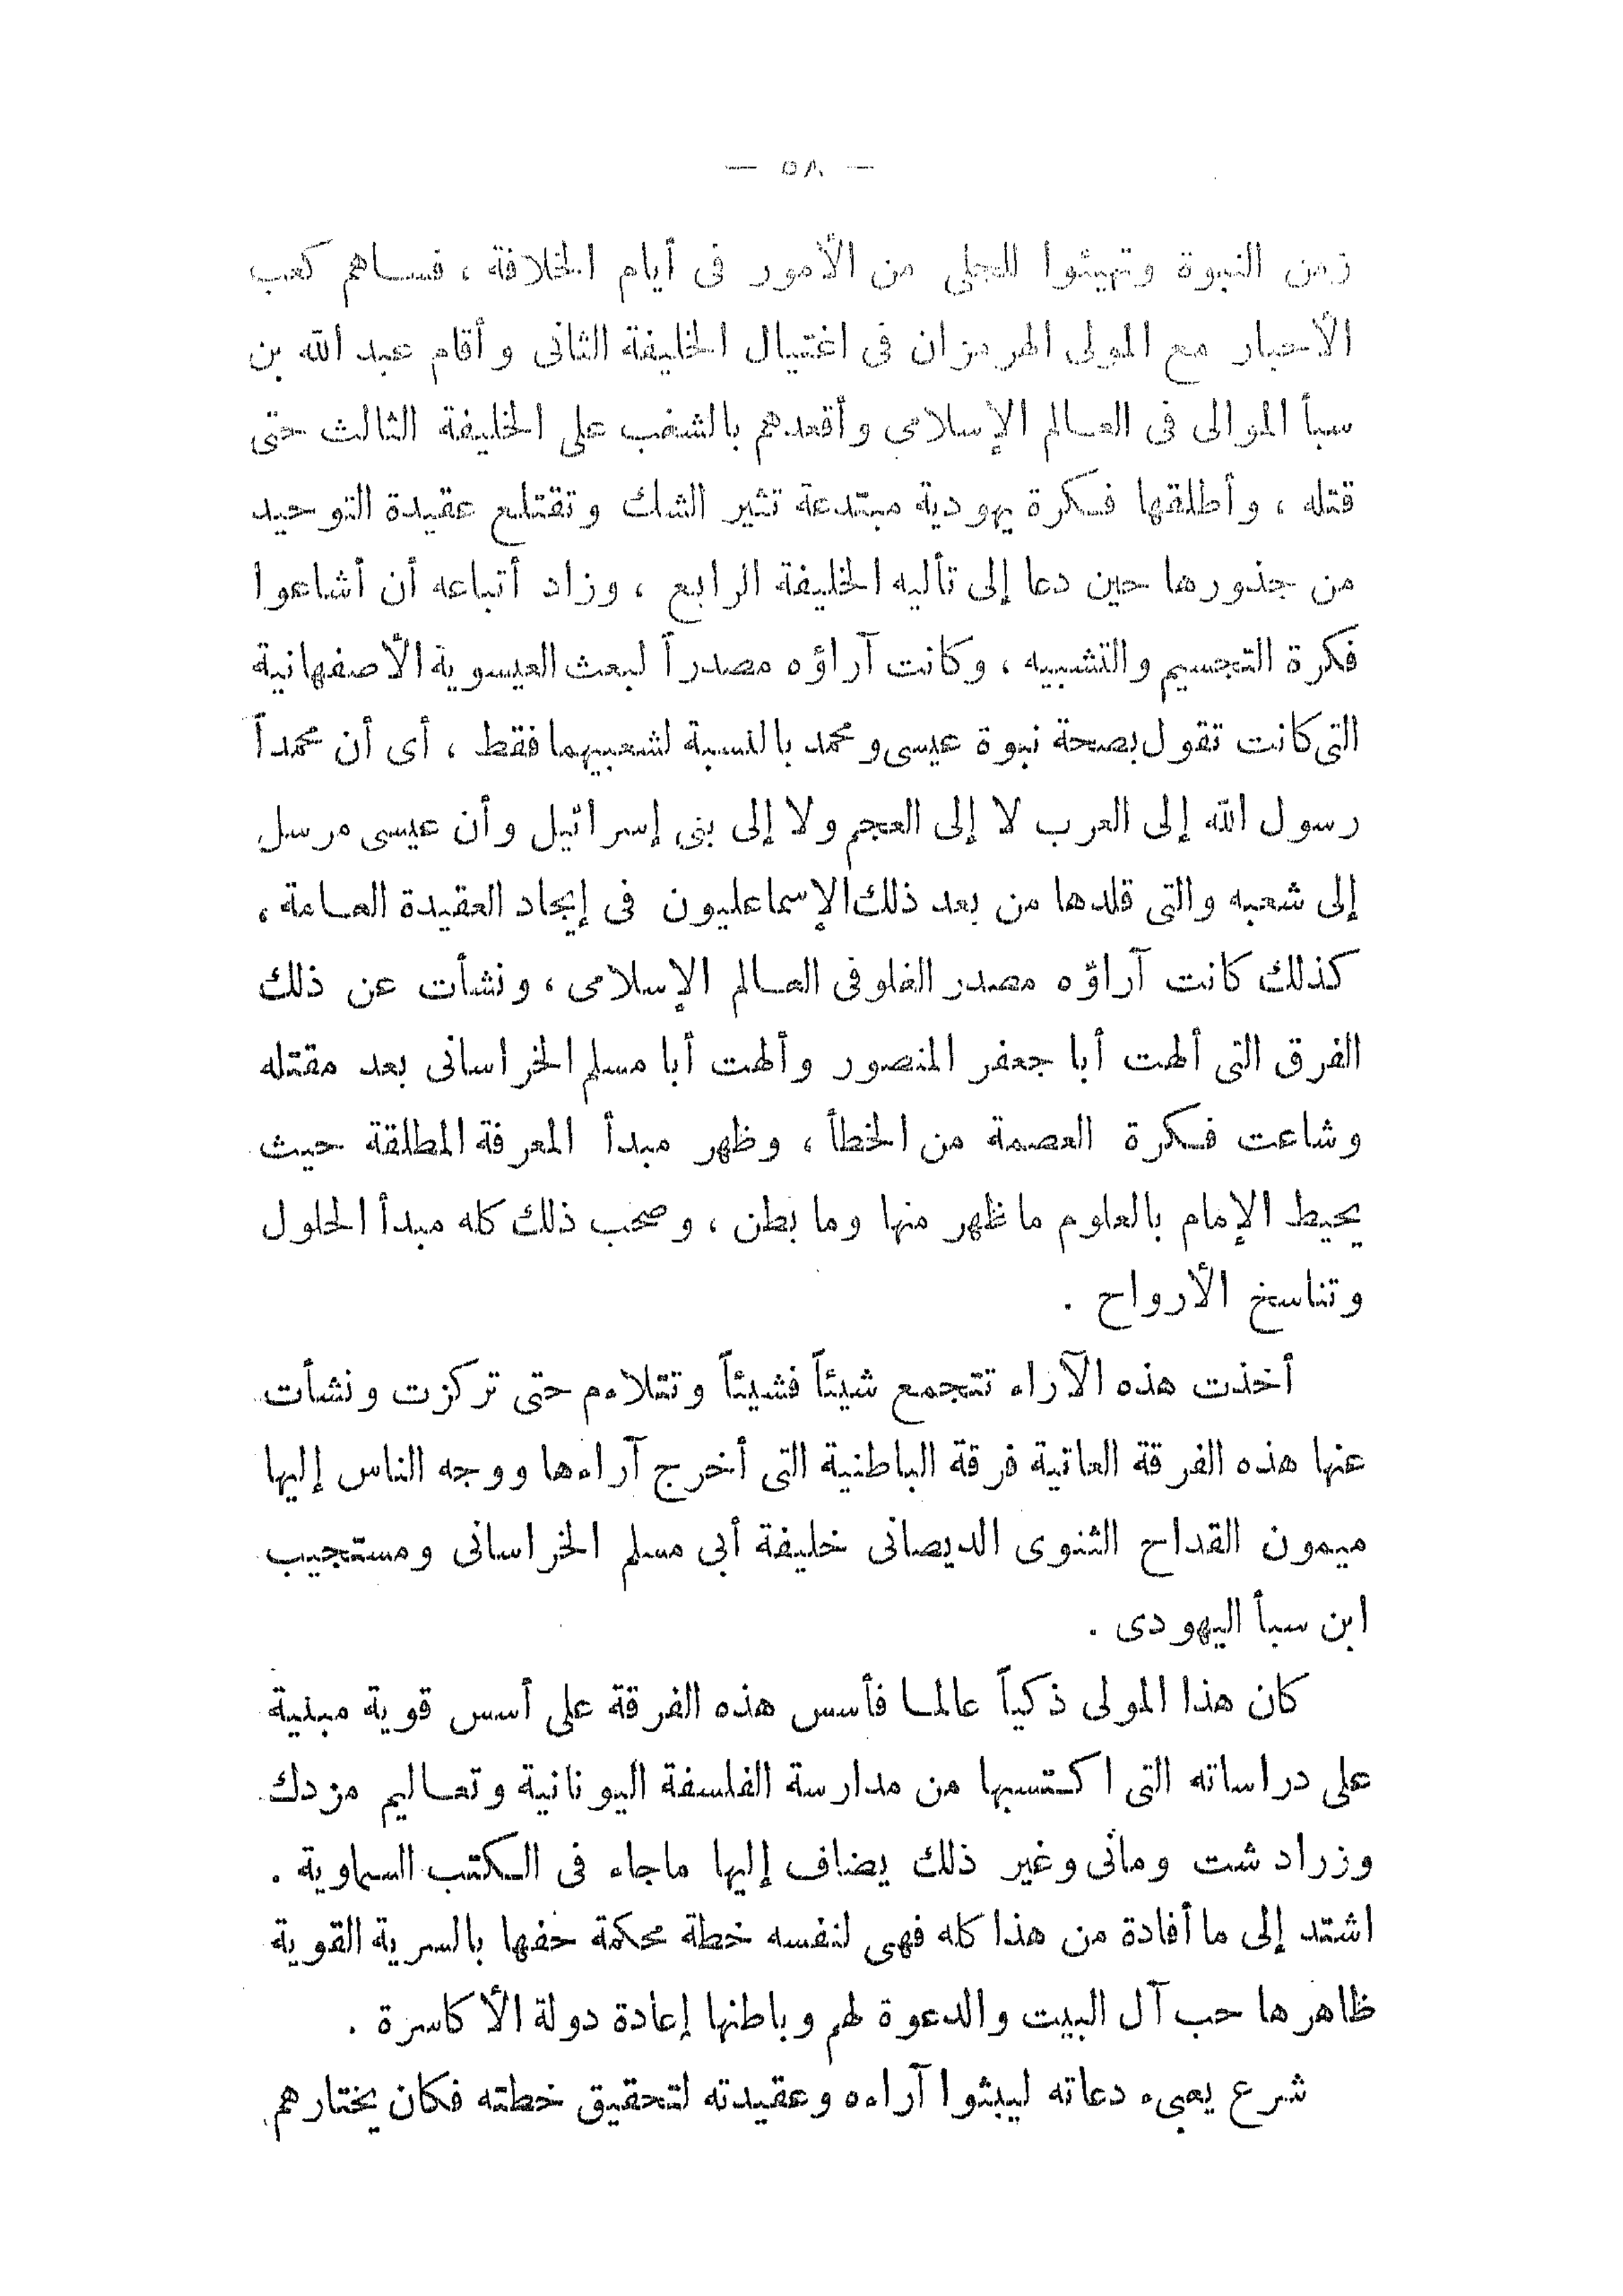 — ٥٨ —
زمن النبوة وتهيئوا للجلى من الأمور فى أيام الخلافة ، فساهم كعب
الأحبار مع المولى الهرمزان فى اغتيال الخليفة الثانى وأقام عبد الله بن
سبأ الموالى فى العالم الإسلامى وأقعدهم بالشغب على الخليفة الثالث حتى
قتله ، وأطلقها فكرة يهودية مبتدعة تثير الشك وتقتلع عقيدة التوحيد
من جذورها حين دعا إلى تأليه الخليفة الرابع ، وزاد أتباعه أن أشاعوا
فكرة التجسيم والتشبيه ، وكانت آراؤه مصدراً لبعث العيسوية الأصفهانية
التى كانت تقول بصحة نبوة عيسى ومحمد بالنسبة لشعبيهما فقط ، أى أن محمداً
رسول الله إلى العرب لا إلى العجم ولا إلى بنى إسرائيل وأن عيسى مرسل
إلى شعبه والتى قلدها من بعد ذلك الإسماعليون فى إيجاد العقيدة العامة ،
كذلك كانت آراؤه مصدر الغلو فى العالم الإسلامى ، ونشأت عن ذلك
الفرق التى ألهت أبا جعفر المنصور وألهت أبا مسلم الخراسانى بعد مقتله
وشاعت فكرة العصمة من الخطأ ، وظهر مبدأ المعرفة المطلقة حيث
يحيط الإمام بالعلوم ما ظهر منها وما بطن ، وصحب ذلك كله مبدأ الحلول
وتناسخ الأرواح .
أخذت هذه الآراء تتجمع شيئاً فشيئاً وتتلاءم حتى تركزت ونشأت
عنها هذه الفرقة العاتية فرقة الباطنية التى أخرج آراءها ووجه الناس إليها
ميمون القداح الثنوى الديصانى خليفة أبى مسلم الخراسانى ومستجيب
ابن سبأ اليهودى .
كان هذا المولى ذكياً عالما فأسس هذه الفرقة على أسس قوية مبنية
على دراساته التى اكتسبها من مدارسة الفلسفة اليونانية وتعاليم مزدك
وزرادشت ومانى وغير ذلك يضاف إليها ماجاء فى الكتب السماوية .
اشتد إلى ما أفادة من هذا كله فهى لنفسه خطة محكمة حفها بالسرية القوية
ظاهرها حب آل البيت والدعوة لهم وباطنها إعادة دولة الأكاسرة .
شرع يعبىء دعاته ليبثوا آراءه وعقيدته لتحقيق خطته فكان يختارهم